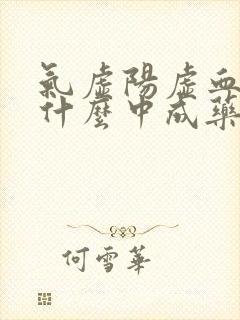 氣虛陽虛血
什麼中成藥
何雪華